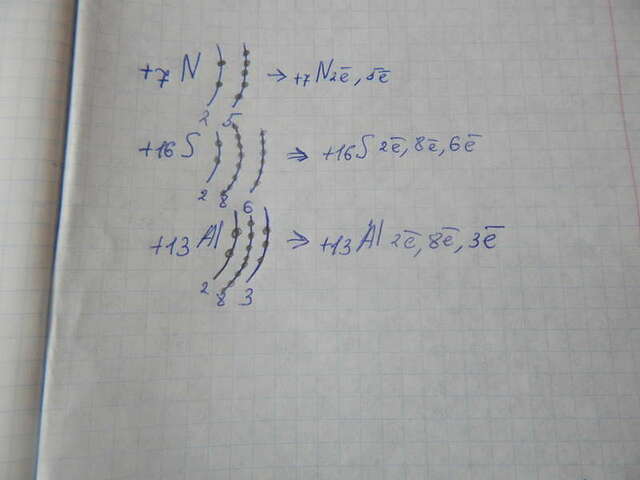 +7 N 2 5 → +7 N 2ē, 5ē
+16 S 2 8 6 ⇒ +16 S 2ē, 8ē, 6ē
+13 Al 2 8 3 ⇒ +13 Al 2ē, 8ē, 3ē